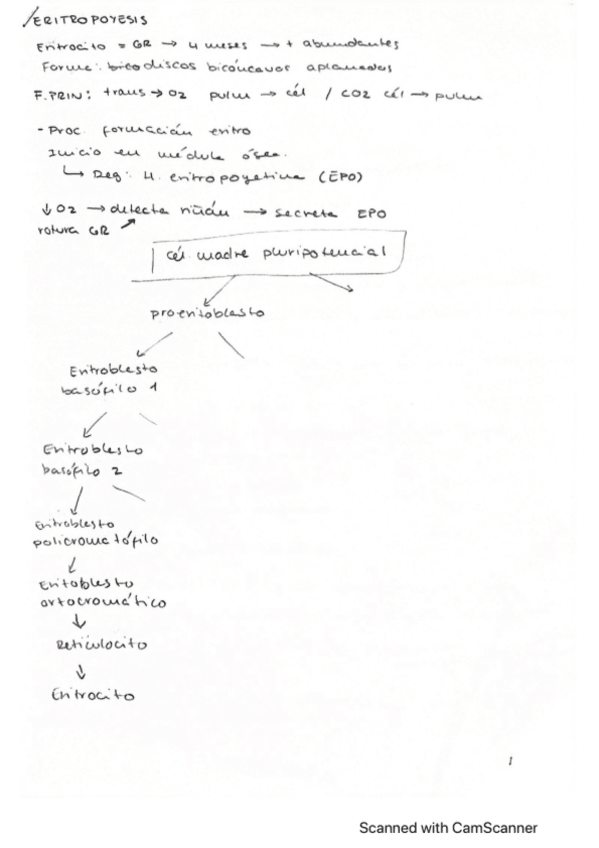 ERITROPOYESIS
Eritrocito = GR → 4 meses → + abundantes
Forma: bicodiscos bicóncavos aplanados
F.PRIN: trans → O2 pulm → cél / CO2 cél → pulm
- Proc. formación eritro
Inicio en médula ósea.
↳ Reg: H. eritropoyetina (EPO)
↓ O2 → detecta riñón → secreta EPO
rotura GR ↗
cél. madre pluripotencial
proeritoblasto
Eritroblasto
basófilo 1
Eritroblasto
basófilo 2
Eritroblasto
policromatófilo
Eritoblasto
ortocromático
Reticulocito
Eritrocito
1
Scanned with CamScanner